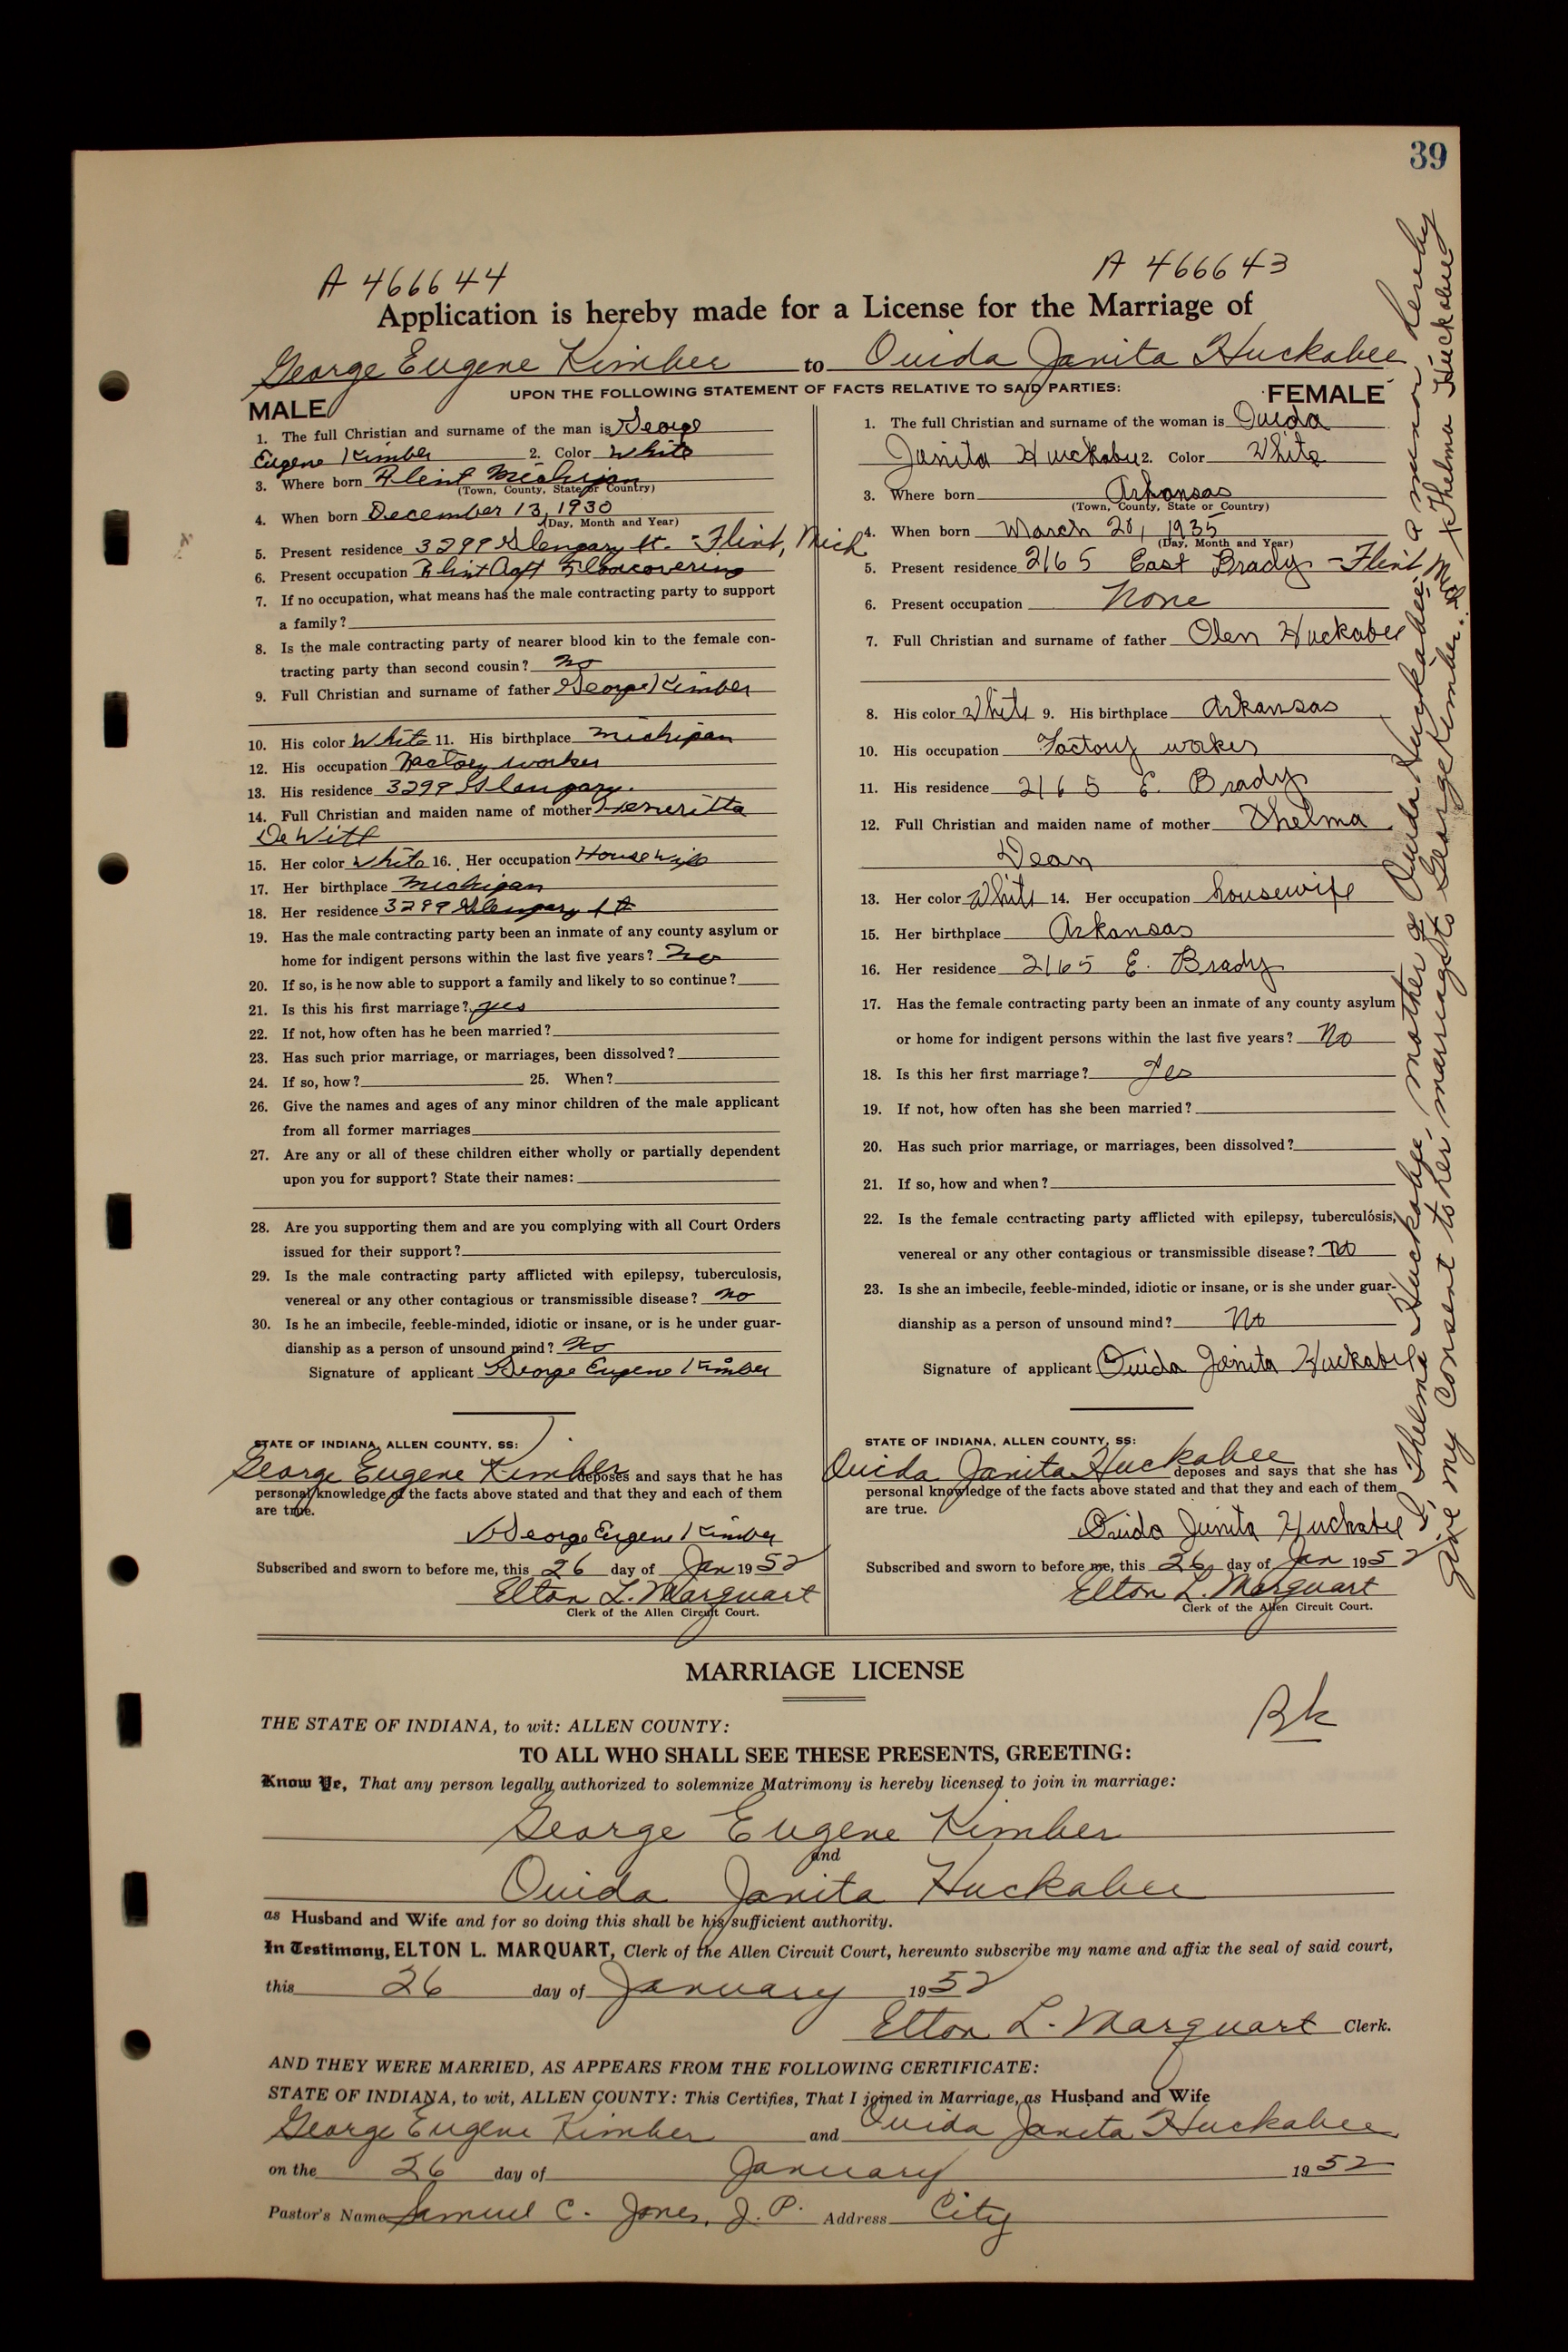 39
A 466644
A 466643
Application is hereby made for a License for the Marriage of
George Eugene Kimber to Ouida Janita Huckabee
UPON THE FOLLOWING STATEMENT OF FACTS RELATIVE TO SAID PARTIES:
MALE
1. The full Christian and surname of the man is George
Eugene Kimber 2. Color White
3. Where born Flint Michigan
(Town, County, State or Country)
4. When born December 13, 1930
(Day, Month and Year)
5. Present residence 3299 Glengary St. - Flint, Mich
6. Present occupation Flint
7. If no occupation, what means has the male contracting party to support
a family?
8. Is the male contracting party of nearer blood kin to the female con-
tracting party than second cousin? no
9. Full Christian and surname of father George Kimber
10. His color White 11. His birthplace Michigan
12. His occupation Factory worker
13. His residence 3299 Glengary.
14. Full Christian and maiden name of mother Heneritta
DeWitt
15. Her color White 16. Her occupation Housewife
17. Her birthplace Michigan
18. Her residence 3299 Glengary St
19. Has the male contracting party been an inmate of any county asylum or
home for indigent persons within the last five years? No
20. If so, is he now able to support a family and likely to so continue?
21. Is this his first marriage? yes
22. If not, how often has he been married?
23. Has such prior marriage, or marriages, been dissolved?
24. If so, how? 25. When?
26. Give the names and ages of any minor children of the male applicant
from all former marriages
27. Are any or all of these children either wholly or partially dependent
upon you for support? State their names:
28. Are you supporting them and are you complying with all Court Orders
issued for their support?
29. Is the male contracting party afflicted with epilepsy, tuberculosis,
venereal or any other contagious or transmissible disease? no
30. Is he an imbecile, feeble-minded, idiotic or insane, or is he under guar-
dianship as a person of unsound mind? No
Signature of applicant George Eugene Kimber
STATE OF INDIANA, ALLEN COUNTY, SS:
George Eugene Kimber deposes and says that he has
personal knowledge of the facts above stated and that they and each of them
are true.
George Eugene Kimber
Subscribed and sworn to before me, this 26 day of Jan 1952
Elton L. Marquart
Clerk of the Allen Circuit Court.
FEMALE
1. The full Christian and surname of the woman is Ouida
Janita Huckabee 2. Color White
3. Where born Arkansas
(Town, County, State or Country)
4. When born March 28, 1935
(Day, Month and Year)
5. Present residence 2165 East Brady - Flint, Mich
6. Present occupation None
7. Full Christian and surname of father Olen Huckabee
8. His color White 9. His birthplace Arkansas
10. His occupation Factory worker
11. His residence 2165 E. Brady
12. Full Christian and maiden name of mother Thelma
Dean
13. Her color White 14. Her occupation housewife
15. Her birthplace Arkansas
16. Her residence 2165 E. Brady
17. Has the female contracting party been an inmate of any county asylum
or home for indigent persons within the last five years? No
18. Is this her first marriage? Yes
19. If not, how often has she been married?
20. Has such prior marriage, or marriages, been dissolved?
21. If so, how and when?
22. Is the female contracting party afflicted with epilepsy, tuberculosis,
venereal or any other contagious or transmissible disease? no
23. Is she an imbecile, feeble-minded, idiotic or insane, or is she under guar-
dianship as a person of unsound mind? No
Signature of applicant Ouida Janita Huckabee
STATE OF INDIANA, ALLEN COUNTY, SS:
Ouida Janita Huckabee deposes and says that she has
personal knowledge of the facts above stated and that they and each of them
are true.
Ouida Janita Huckabee
Subscribed and sworn to before me, this 26 day of Jan 1952
Elton L. Marquart
Clerk of the Allen Circuit Court.
I, Thelma Huckabee, mother of Ouida Huckabee, a minor hereby
give my consent to her marriage to George Kimber. x Thelma Huckabee
MARRIAGE LICENSE
Bk
THE STATE OF INDIANA, to wit: ALLEN COUNTY:
TO ALL WHO SHALL SEE THESE PRESENTS, GREETING:
Know Ye, That any person legally authorized to solemnize Matrimony is hereby licensed to join in marriage:
George Eugene Kimber
and
Ouida Janita Huckabee
as Husband and Wife and for so doing this shall be his sufficient authority.
In Testimony, ELTON L. MARQUART, Clerk of the Allen Circuit Court, hereunto subscribe my name and affix the seal of said court,
this 26 day of January 1952
Elton L. Marquart Clerk.
AND THEY WERE MARRIED, AS APPEARS FROM THE FOLLOWING CERTIFICATE:
STATE OF INDIANA, to wit, ALLEN COUNTY: This Certifies, That I joined in Marriage, as Husband and Wife
George Eugene Kimber and Ouida Janita Huckabee
on the 26 day of January 1952
Pastor's Name Samuel C. Jones, J. P. Address City